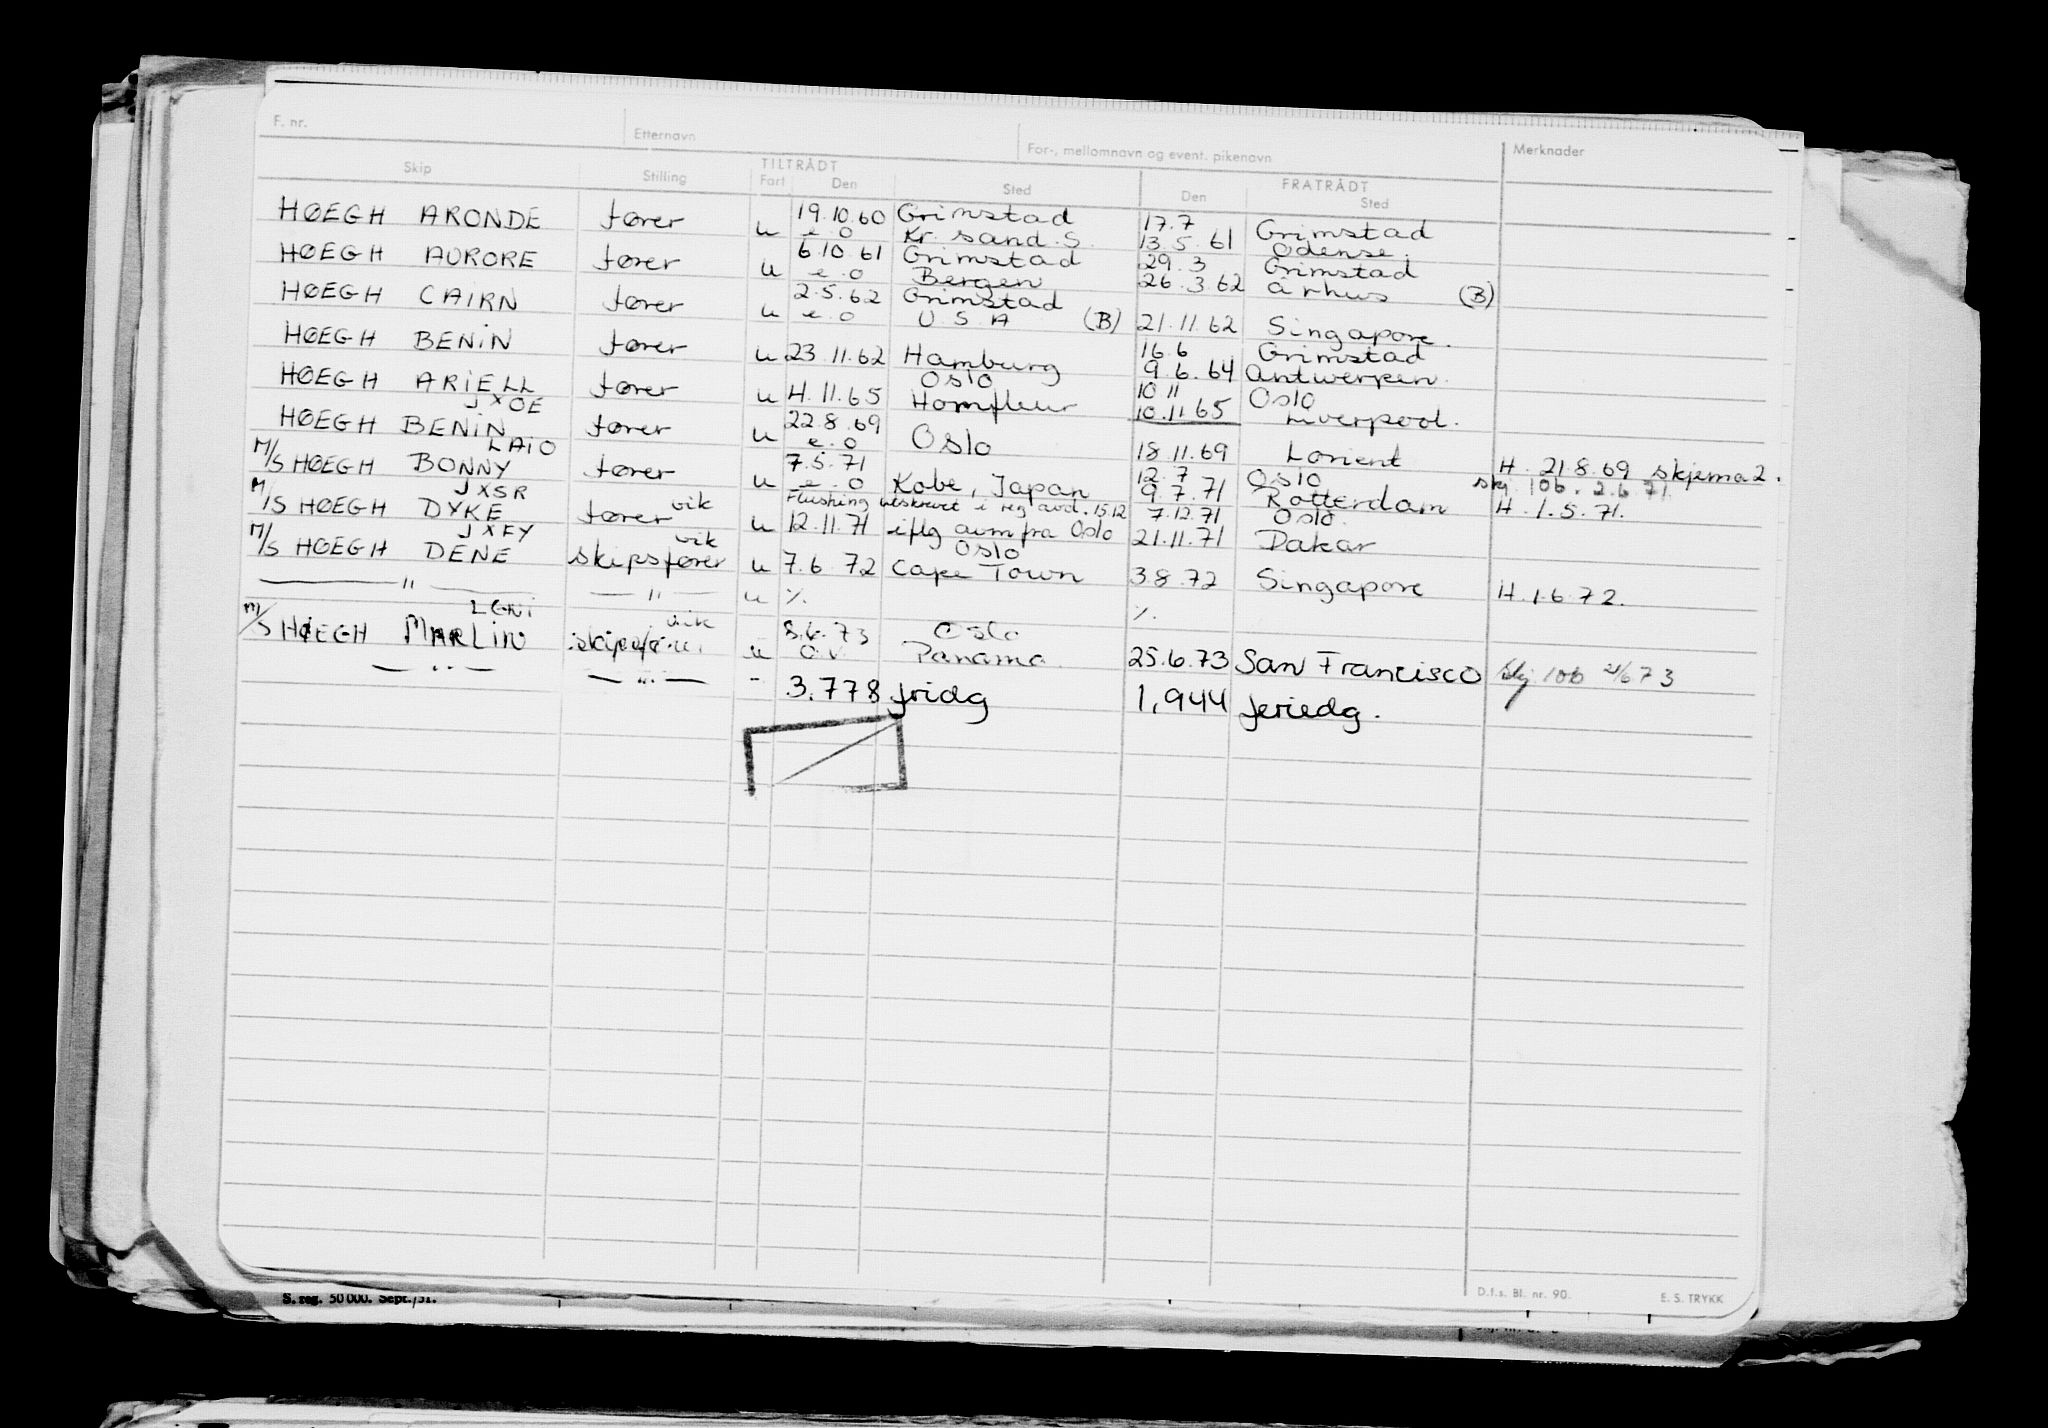 F. nr. Etternavn For-, mellomnavn og event. pikenavn Merknader
Skip Stilling TILTRÅDT FRATRÅDT
Fart Den Sted Den Sted
19.10.60 Grimstad 17.7 Grimstad
HØEGH ARONDE fører u e.o Kr.sand.S. 13.5.61 Odense.
6.10.61 Grimstad 29.3 Grimstad
HØEGH AURORE fører u e.o Bergen 26.3.62 Århus (B)
2.5.62 Grimstad
HØEGH CAIRN fører u e.o U.S.A (B) 21.11.62 Singapore.
16.6 Grimstad
HØEGH BENIN fører u 23.11.62 Hamburg 9.6.64 Antwerpen.
Oslo 10 11 Oslo
HØEGH ARIELL fører u 4.11.65 Honfleur 10.11.65 Liverpool.
JXOE 22.8.69
HØEGH BENIN fører u e.o Oslo 18.11.69 Lorient H. 21.8.69 skjema 2.
LAIO 7.5.71 12.7 Oslo skj. 10b. 2.6.71
M/S HØEGH BONNY fører u e.o Kobe, Japan 9.7.71 Rotterdam H. 1.5.71.
JXSR vik Flushing utskrevet i reg avd. 15.12 7.12.71 Oslo.
M/S HØEGH DYKE fører u 12.11.71 iflg avm fra Oslo 21.11.71 Dakar
JXFY vik Oslo
M/S HØEGH DENE skipsfører u 7.6.72 Cape Town 3.8.72 Singapore H. 1.6.72.
— " — — " — u ٪ ٪
LENI vik 8.6.73 Oslo
M/S HØEGH MARLIN skipsfører u O.V. Panama. 25.6.73 San Francisco skj 10b 21/6 73
— " — — " — - 3.778 fridg 1.944 feriedg.
S. reg. 50 000. Sept./51.
D.f.s. Bl. nr. 90. E. S. TRYKK